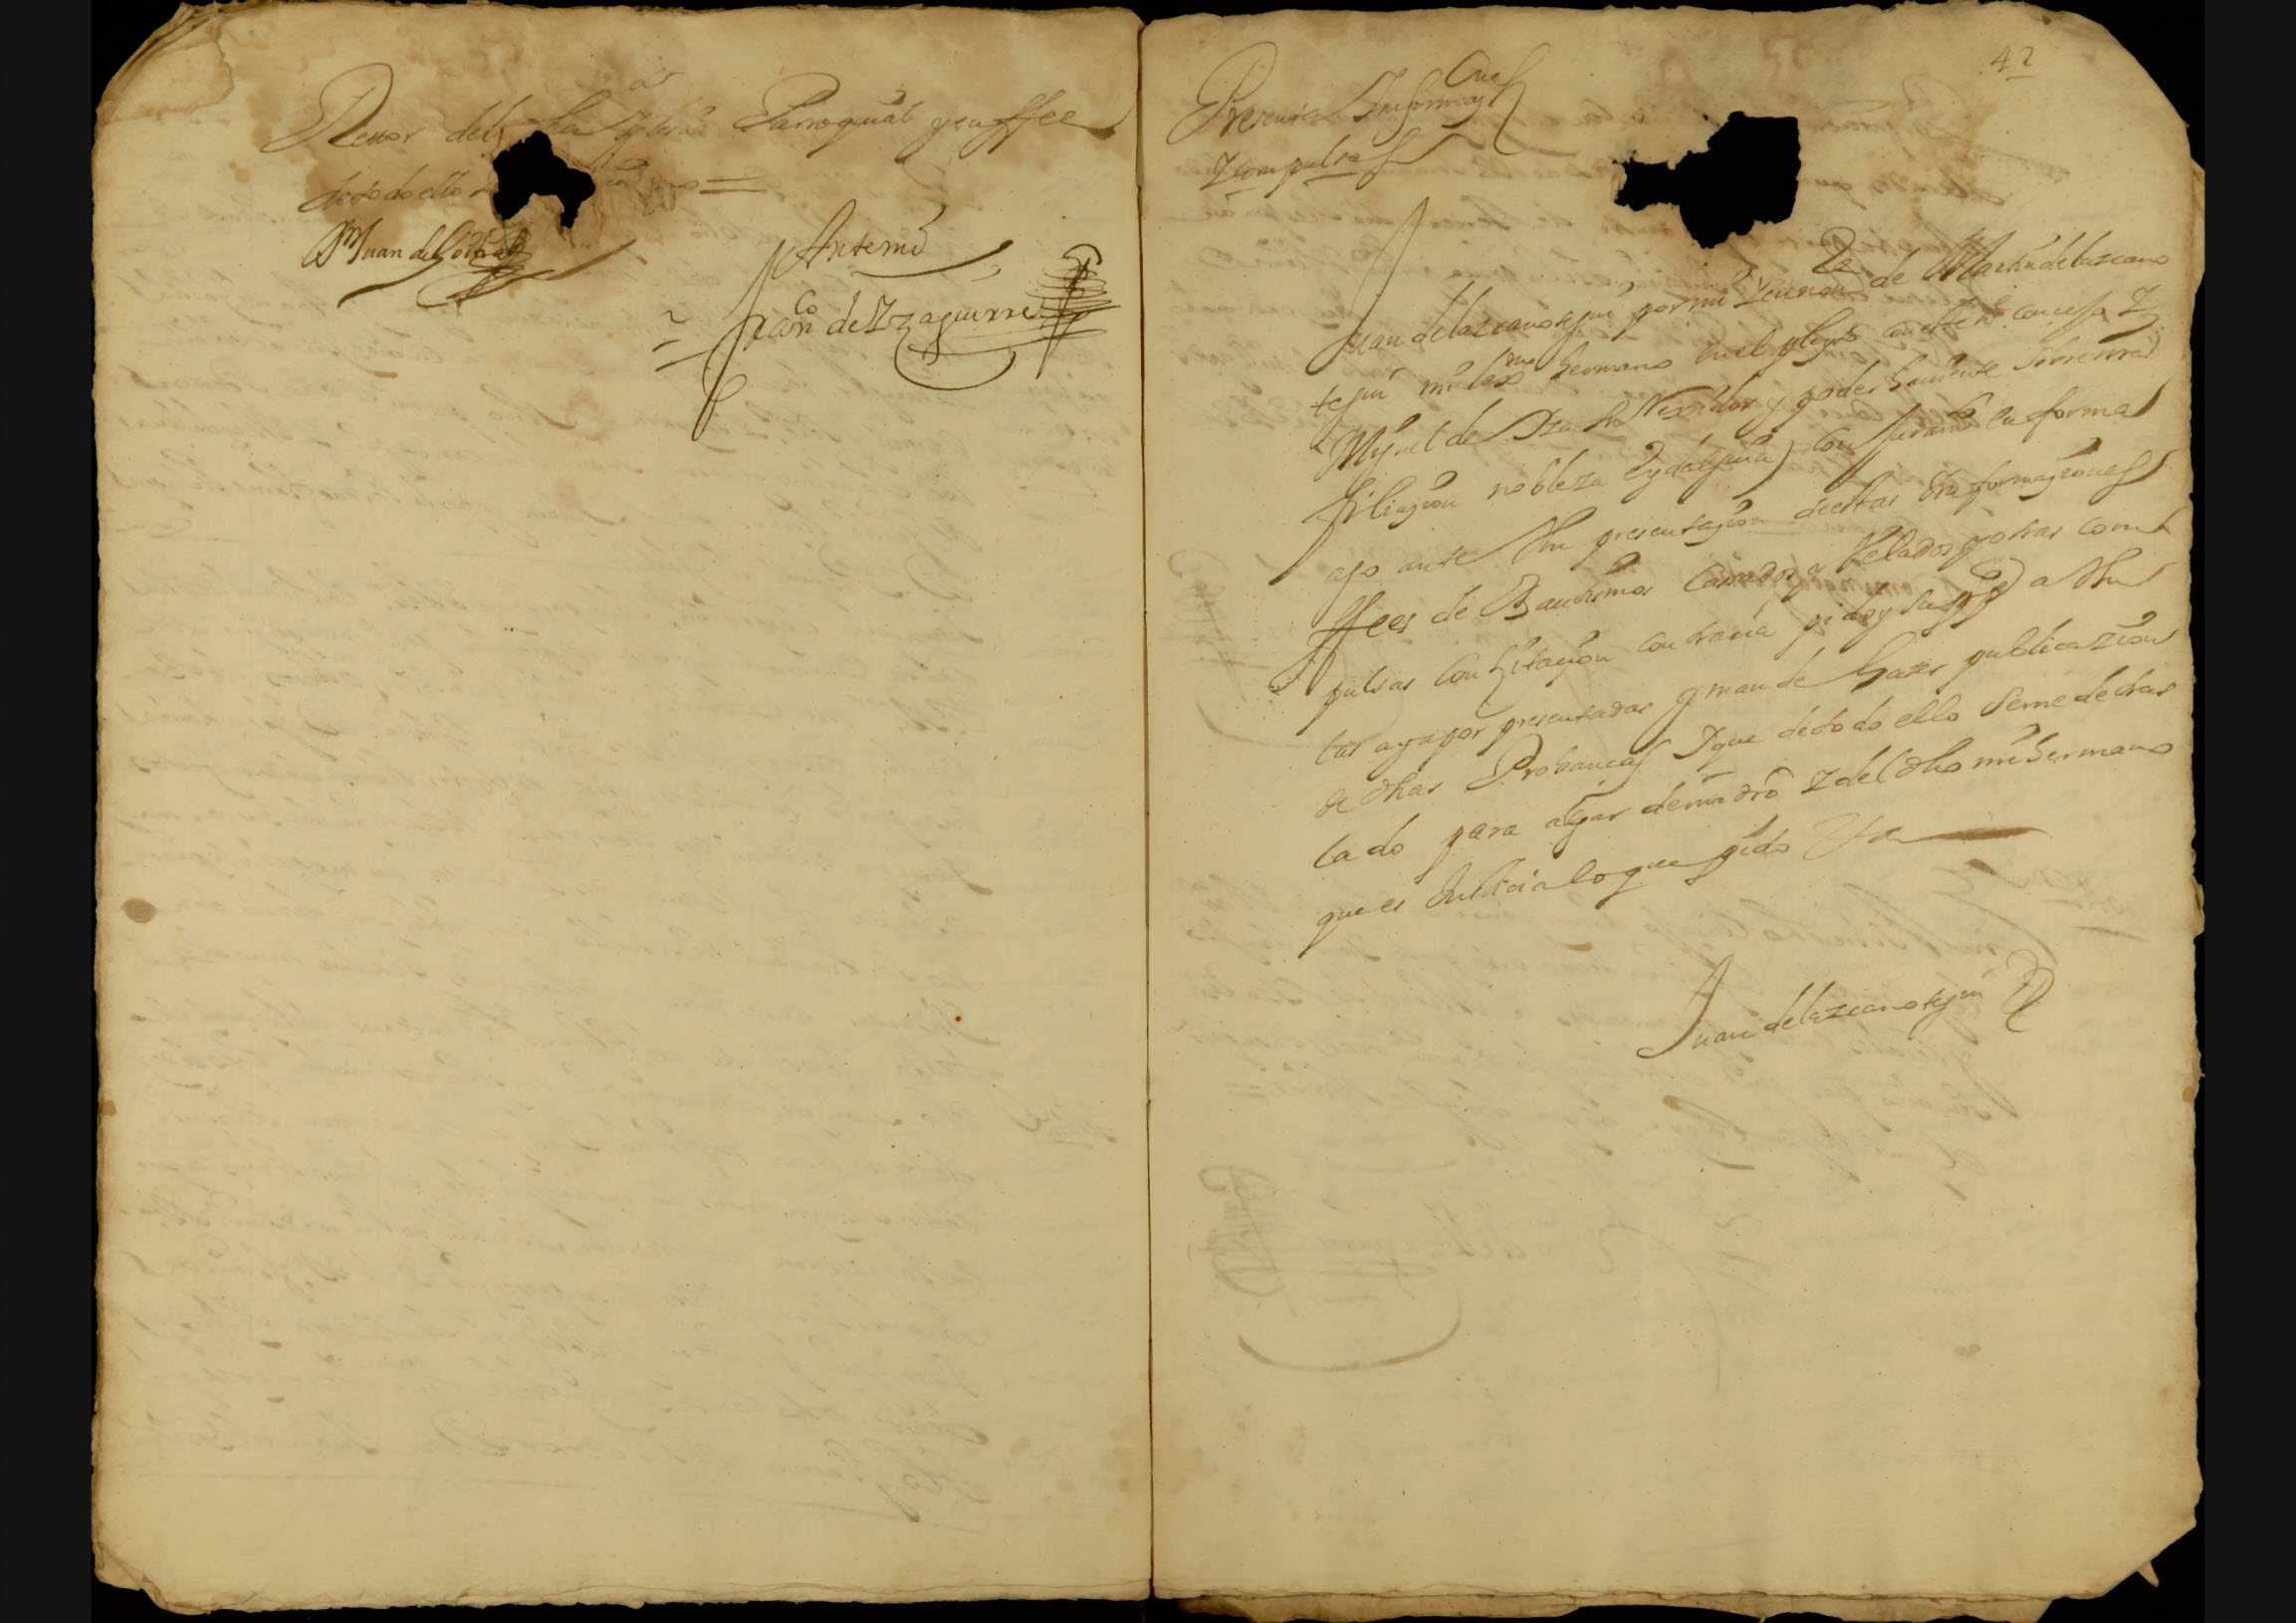 Retor de la dha Yglesia Parroquial y en ffee
de todo ello
Juan de Goitia
Antemi
Fran co de Yzaguirre
42
Presenta Informaçiones
Y compulsas
Juan de lazcanotegui por mi Y en nonbre de Martin de lazcano
tegui mi lexmo hermano en el pleyto con el conçejo Y
Miguel de su Rexidor y poder haviente sobre nra
filiaçion nobleza Eydalguia) Con Juramto en forma
ago ante Vm presentaçion destas Ynformaçiones
ffees de Bautismos Casados y Velados y otras com
pulsas con çitaçion contraria pido y supco a Vm
las aya por presentadas y mande hazer publicazion
de dhas Probanças Y que de todo ello se me de tras
lado para alegar de mi dro Y del dho mi hermano
que es Justicia lo que pido Ya
Juan de lazcanotegui